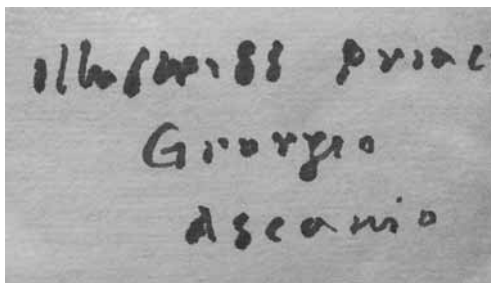 Illustriss princ
Giorgio
Ascanio